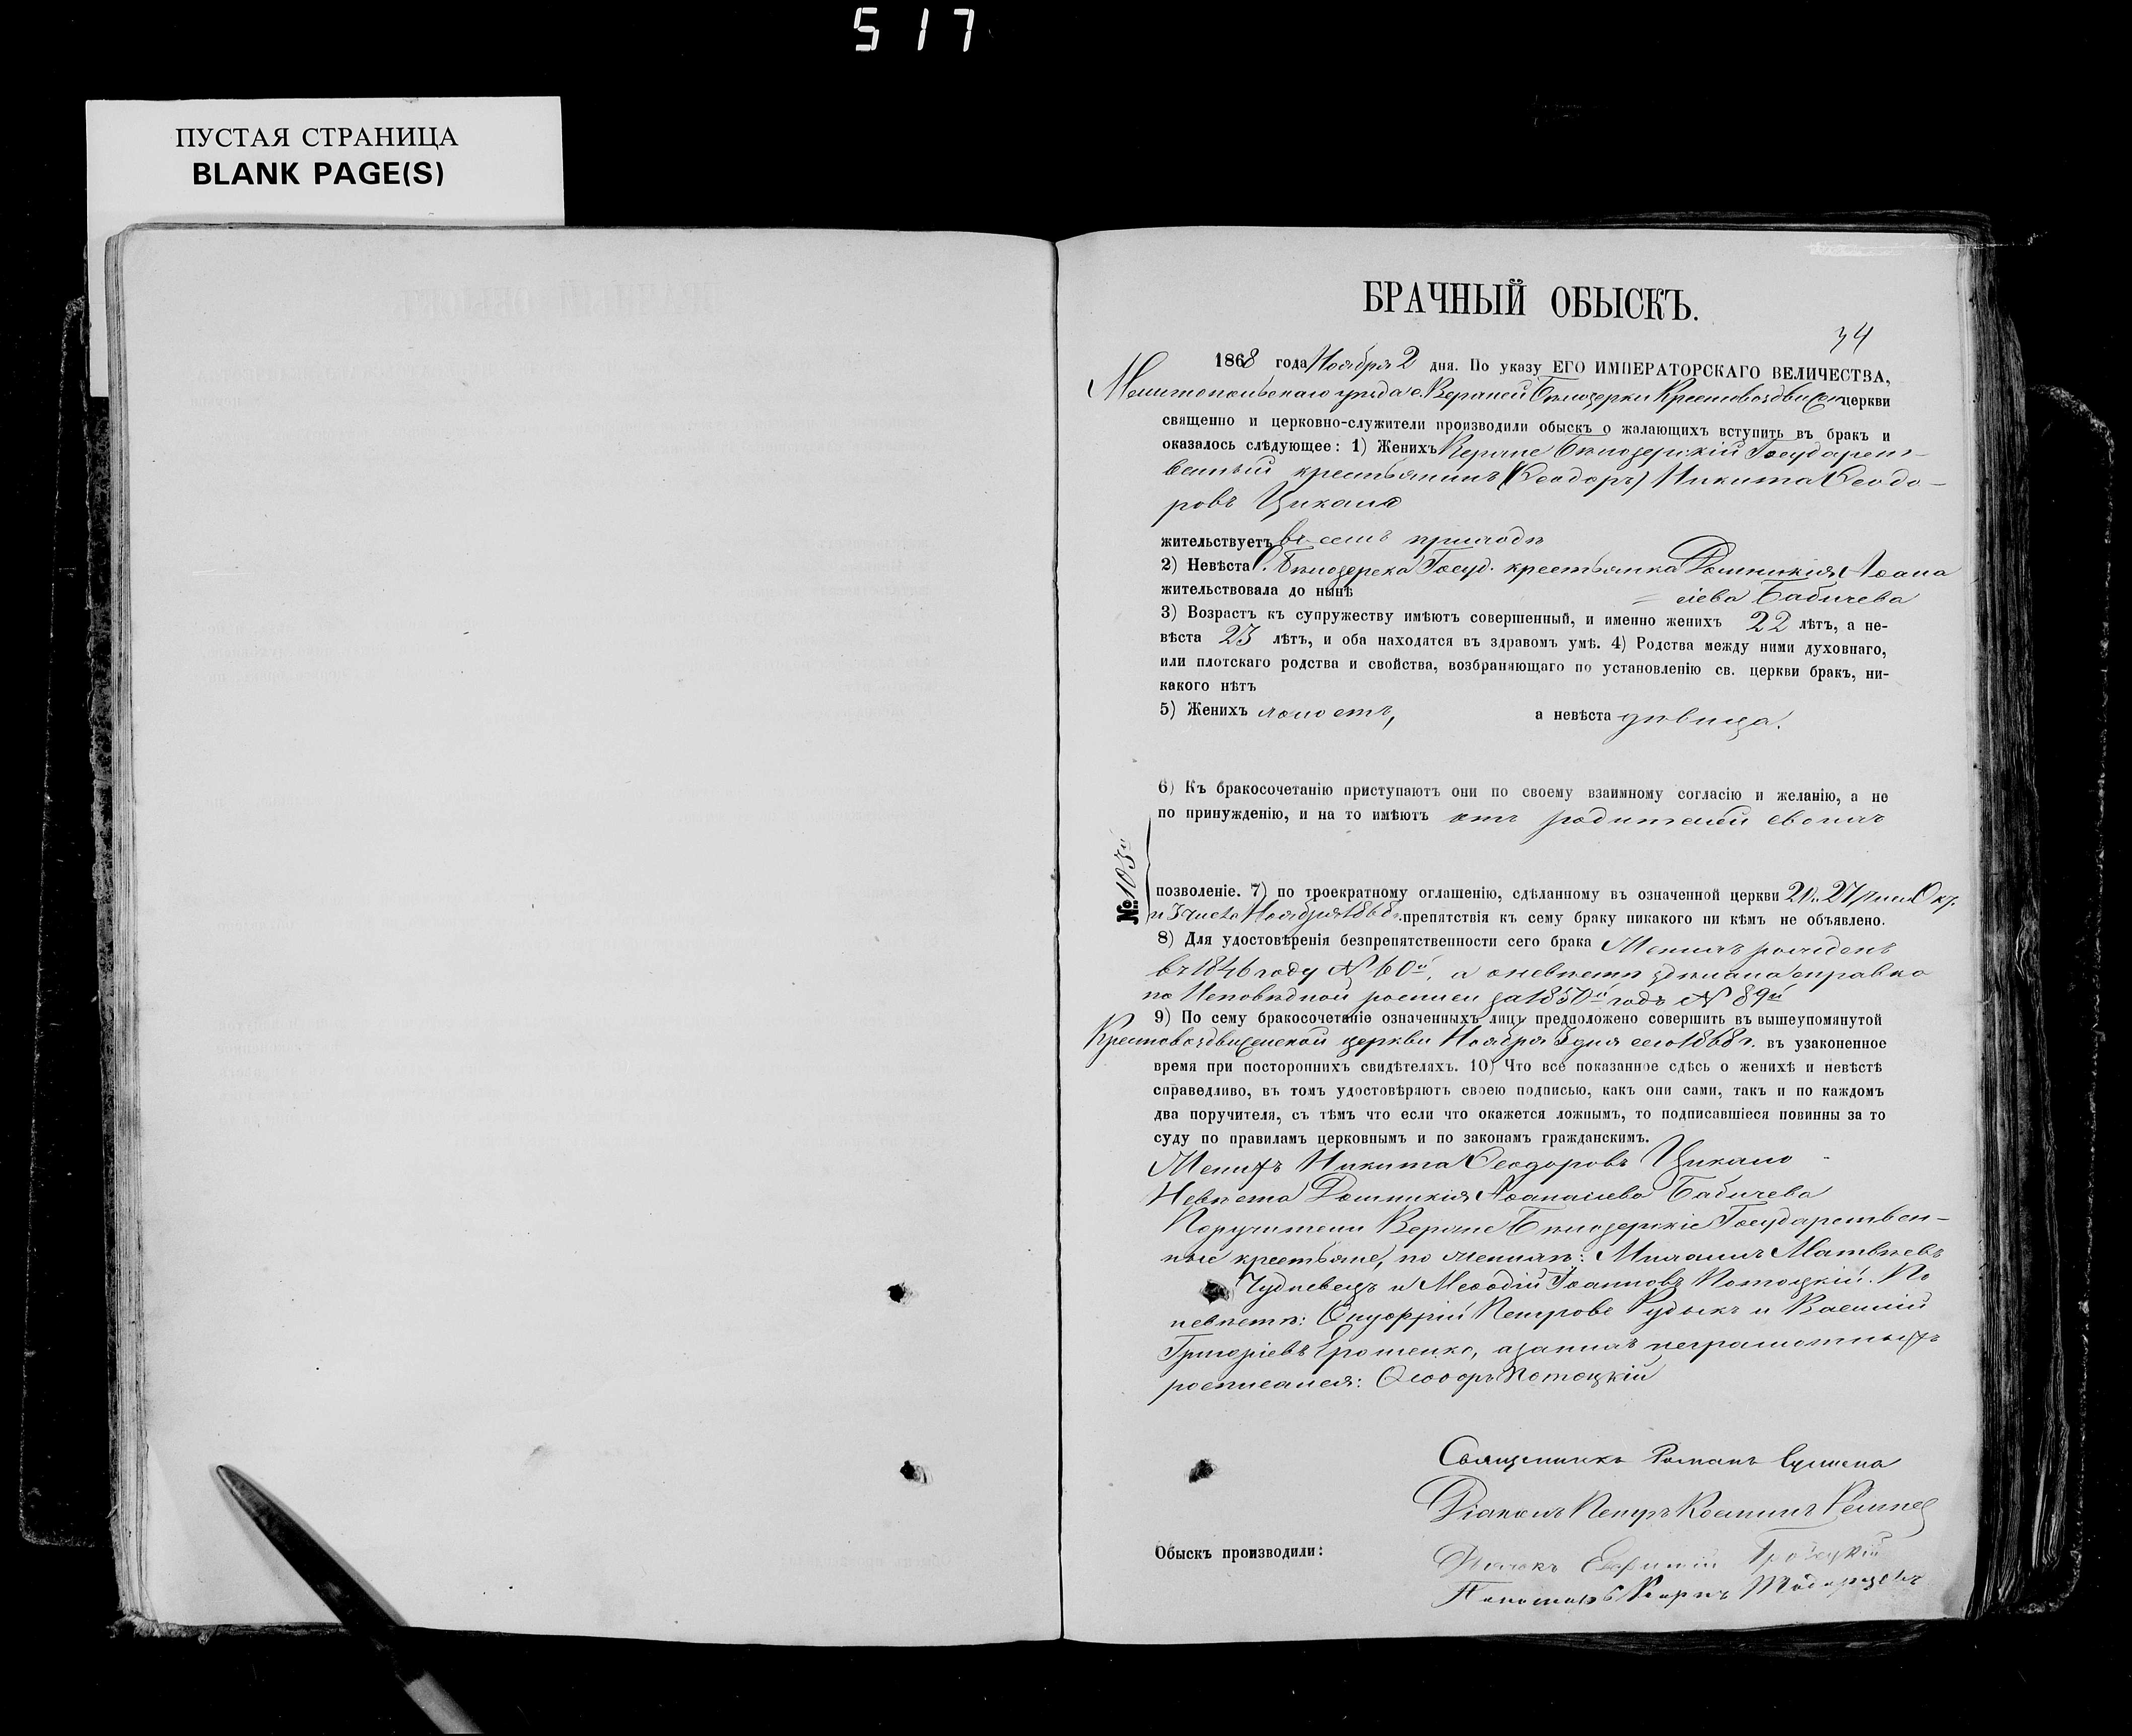 517
ПУСТАЯ СТРАНИЦА
BLANK PAGE(S)
БРАЧНЫЙ ОБЫСКЪ.
34
1868 года Ноября 2 дня. По указу ЕГО ИМПЕРАТОРСКАГО ВЕЛИЧЕСТВА,
Мелитопольскаго уезда с. Верхней Бѣлозерки Крестовоздвижен церкви
священно и церковно-служители производили обыскъ о жалающихъ вступить въ бракъ и
оказалось слѣдующее: 1) Женихъ Верхне Бѣлозерскій Государст-
венный крестьянинъ (Ѳеодоръ) Никита Ѳеодо-
ровъ Цикало
жительствуетъ въ семъ приходѣ
2) Невѣста с. Бѣлозерска Госуд. крестьянка Домникія Аѳана
жительствовала до нынѣ = сіева Бабичева
3) Возрастъ къ супружеству имѣютъ совершенный, и именно женихъ 22 лѣтъ, а не-
вѣста 23 лѣтъ, и оба находятся въ здравомъ умѣ. 4) Родства между ними духовнаго,
или плотскаго родства и свойства, возбраняющаго по установленію св. церкви бракъ, ни-
какого нѣтъ
5) Женихъ холостъ, а невѣста дѣвица.
6) Къ бракосочетанію приступаютъ они по своему взаимному согласію и желанію, а не
по принужденію, и на то имѣютъ отъ родителей своихъ
№ 103й
позволеніе. 7) по троекратному оглашенію, сдѣланному въ означенной церкви 20. 27 Окт.
и 3 числа Ноября 1868 г. препятствія къ сему браку никакого ни кѣмъ не объявлено.
8) Для удостовѣренія безпрепятственности сего брака Женихъ рожденъ
въ 1846 году № 60й, а о невѣстѣ здѣлана справка
по Исповѣдной росписи за 1850й годъ № 89й
9) По сему бракосочетаніе означенныхъ лицъ предположено совершить въ вышеупомянутой
Крестовоздвиженской церкви Ноября 3 дня сего 1868 г. въ узаконенное
время при постороннихъ свидѣтеляхъ. 10) Что все показанное сдѣсь о женихѣ и невѣстѣ
справедливо, въ томъ удостовѣряютъ своею подписью, какъ они сами, такъ и по каждомъ
два поручителя, съ тѣмъ что если что окажется ложнымъ, то подписавшіеся повинны за то
суду по правиламъ церковнымъ и по законамъ гражданскимъ.
Женихъ Никита Ѳеодоровъ Цикало
Невѣста Домникія Аѳанасіева Бабичева
Поручители Верхне Бѣлозерскіе Государствен-
ные крестьяне, по женихѣ: Михаилъ Матвѣевъ
Чудновецъ и Меѳодій Іоанновъ Потоцкій. По
невѣстѣ: Онуфрій Петровъ Рудыкъ и Василій
Григоріевъ Ерошенко, а за нихъ неграмотныхъ
росписался: Ѳеодоръ Потоцкій
Священникъ Романъ
Діаконъ Петръ Косминъ
Обыскъ производили:
Дьячокъ Евфимій
Пономарь